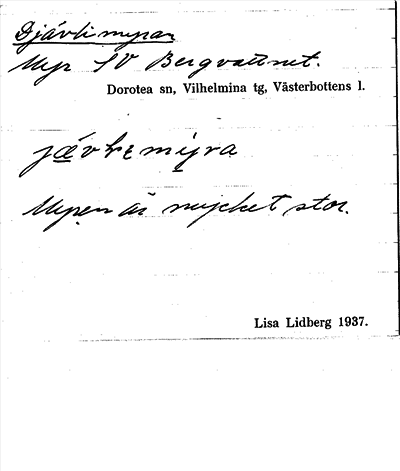 Djävlimyran
Myr SV Bergvattnet.
Dorotea sn, Vilhelmina tg, Västerbottens l.
Myren är mycket stor.
Lisa Lidberg 1937.